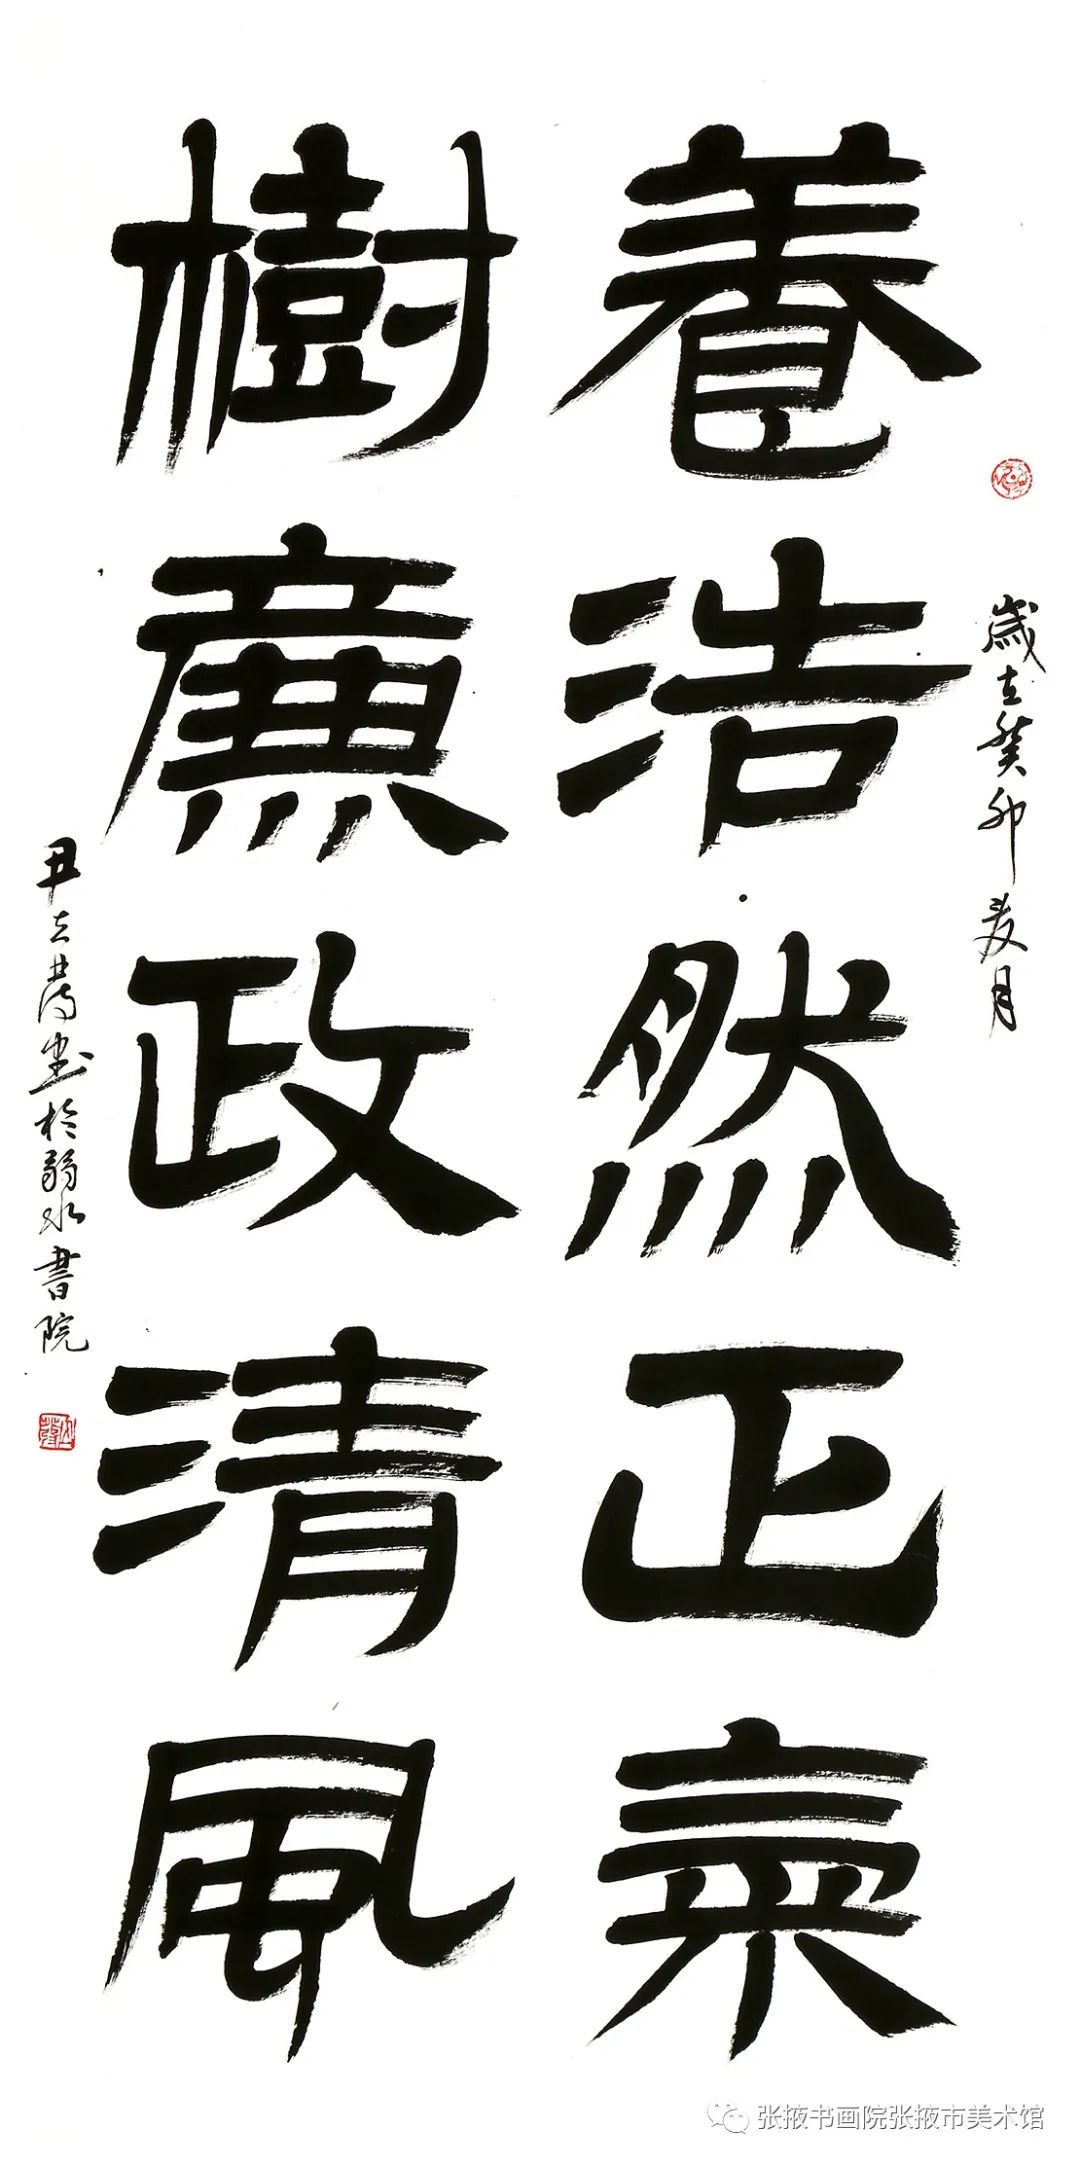 養浩然正氣
樹廉政清風
歲在癸卯夏月
尹立 書於弱水書院
张掖书画院张掖市美术馆